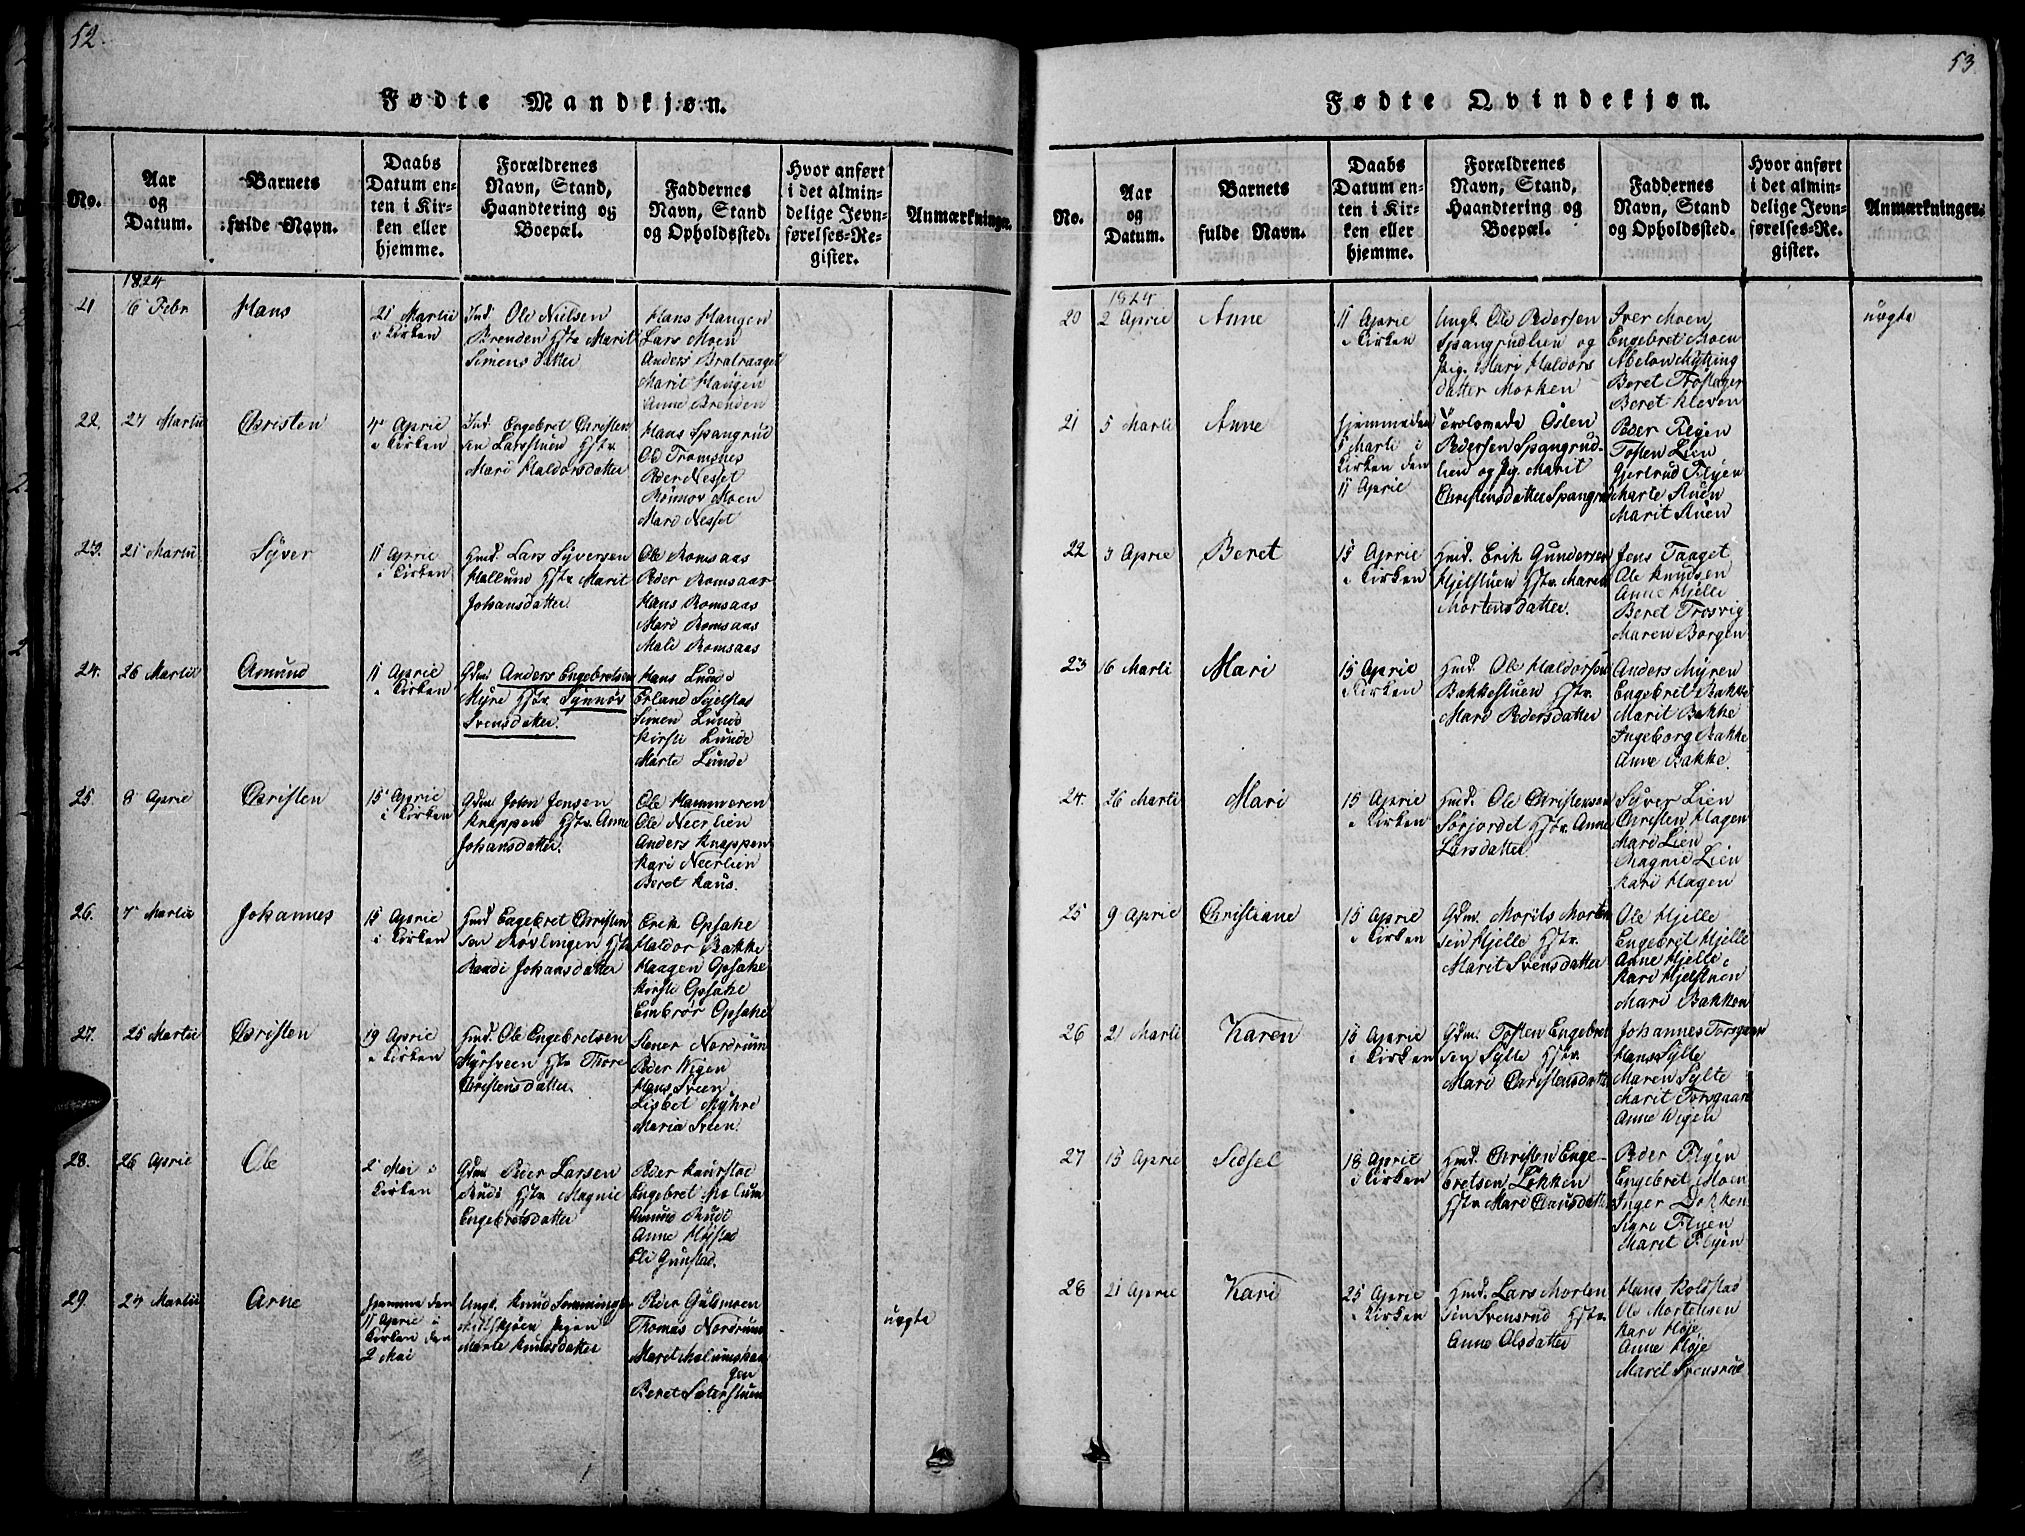 52.
Fødte Mandkjøn.
No.
Aar
og
Datum.
Barnets
fulde Navn.
Daabs
Datum en-
ten i Kir-
ken eller
hjemme.
Forældrenes
Navn, Stand,
Haandtering og
Boepæl.
Faddernes
Navn, Stand
og Opholdssted.
Hvor anført
i det almin-
delige Jevn-
førelses-Re-
gister.
Anmærkninger.
1824
21
6 Febr
Hans
21 Martii
i Kirken
Ind. Ole Nielsen
Brenden Hstr Marit
Simens Datter
Hans Haugen
Lars Moen
Anders Bratraaget
Marit Haugen
Anne Brenden
22.
27 Martii
Christen
4 Aprie
i Kirken
Ind. Engebret Christen
sen Larsstuen Hstr.
Mari Haldorsdatter
Hans Spangrud
Ol Tromsnes
Peder Nesset
Rønnov Moen
Mari Nesset
23.
21 Martii
Syver
11 Aprie
i Kirken
Hmd. Lars Syversen
Hallund Hstr Marit
Johansdatter
Ole Romsaas
Peder Romsaas
Hans Romsaas
Mari Romsaas
Mali Romsaas
24.
26 Martii
Amund
11 Aprie
i Kirken
Gdm Anders Engebretsen
Myre Hstr. Synnøv
Svensdatter.
Hans Lunde
Erland Sielstad
Simen Lunde
Kirsti Lunde
Marte Lunde
25.
8 Aprie
Christen
15 Aprie
i Kirken
Gdm John Jensen
Knappen Hstr. Anne
Johansdatter.
Ole Hammeren
Ole Neerlien
Anders Knappen
Kari Neerlien
Beret Kaus.
26.
7 Martii
Johannes
15 Aprie
i Kirken
Hmd Engebret Christen
sen Røvlingen Hstr
Randi Johansdatter
Erik Opsahe
Haldor Bakke
Haagen Opsahe
Kirsti Opsahe
Embrør Opsahe
27.
25 Martii
Christen
19 Aprie
i Kirken
Hmd. Ole Engebretsen
Myrsveen Hstr Thore
Christensdatter.
Stener Nordrum
Peder Wigen
Hans Sveen
Lisbet Myhre
Maria Sveen.
28.
26 Aprie
Ole
2 Mai i
Kirken
Gdm Peder Larsen
Rude Hstr Magnie
Engebretsdatter
Peder Kaurstad
Engebret Molum
Amund Rude
Anne Høistad
Eli Gunstad.
29.
24 Martii
Arne
hjemme den
11 Aprie i
Kirken den
2 Mai
Ungk. Knud Simminge
Pigen
Marte Knudsdatter
Peder Gulmoen
Thomas Nordrum
Marit Malumshau
gen
Beret Sæterstuen
uægte
53
Fødte Qvindekjøn.
No.
Aar
og
Datum.
Barnets
fulde Navn.
Daabs
Datum en-
ten i Kir-
ken eller
hjemme.
Forældrenes
Navn, Stand,
Haandtering og
Boepæl.
Faddernes
Navn, Stand
og Opholdssted.
Hvor anført
i det almin-
delige Jevn-
førelses-Re-
gister.
Anmærkninger.
1824
20
2 Aprie
Anne
11 Aprie
i Kirken
Ungk. Ole Pedersen
Spangrudlien og
Pig. Mari Haldors
datter Morken
Iver Moen
Engebret Moen
Abelon Mytting
Beret Frøslager
Beret Kleven
uægte
21
5 Marti
Anne
hjemme den
5 Marti i
Kirken den
11 Aprie
Trolovede Osten
Pedersen Spangrud-
lien og Pg. Marit
Christensdatter Spangrud
Peder Flyen
Tosten Lien
Gjertrud Flyen
Marte Stuen
Marit Stuen
22
3 Aprie
Beret
15 Aprie
i Kirken
Hmd. Erik Gundersen
Hjelstuen Hstr. Maren
Mortensdatter.
Jens Taaget
Ole Knudsen
Anne Hjelle
Beret Trosvig
Maren Borgen
23
16 Marti
Mari
15 Aprie
i Kirken
Hmd. Ole Haldorsen
Bakkestuen Hstr.
Mari Pedersdatter
Anders Myren
Engebret Bakke
Marit Bakke
Ingeborg Bakke
Anne Bakke.
24.
26 Marti
Mari
15 Aprie
i Kirken
Hmd. Ole Christensen
Sørjordet Hstr. Anne
Larsdatter
Syver Lien
Christen Hagen
Mari Lien
Magnie Lien
Kari Hagen
25
9 Aprie
Christiane
15 Aprie
i Kirken
Gdm. Morits Morten
sen Hjelle Hstr.
Marit Svensdatter
Ole Hjelle
Engebret Hjelle
Anne Hjelle
Kari Hjelstuen
Mari Bakken
26
21 Marti
Karen
15 Aprie
i Kirken
Gdm. Tosten Engebret
sen Sylte Hstr.
Mari Christensdatter
Johannes Torsgaard
Hans Sylte
Maren Sylte
Marit Torsgaard
Anne Wigen
27
15 Aprie
Sidsel
18 Aprie
i Kirken
Hmd. Christen Enge-
bretsen Løkken
Hstr. Mari Clausdatter
Peder Flyen
Engebret Moen
Inger Løkken
Sigri Flyen
Marit Flyen
28
21 Aprie
Kari
25 Aprie
i Kirken
Hmd. Lars Morten
sen Svensrud Hstr.
Anne Olsdatter
Hans Kolstad
Ole Mortensen
Kari Høje
Anne Høje
Marit Svensrud